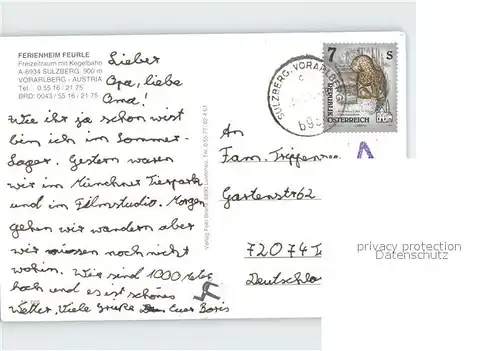 FERIENHEIM FEURLE
Freizeitraum mit Kegelbahn
A-6934 SULZBERG, 900 m
VORARLBERG - AUSTRIA
Tel. 0 55 16 / 21 75
BRD: 0043/ 55 16 / 21 75
Lieber
Opa, liebe
Oma!
Wie ihr ja schon wisst
bin ich im Sommer-
Lager. Gestern waren
wir im Münchner Tierpark
und im Filmstudio. Morgen
gehen wir wandern aber
wir wissen noch nicht
wohin. Wir sind 1000 Meter
hoch und es ist schönes
Wetter. Viele Grüße Euer Boris
Verlag Foto
SULZBERG, VORARLBERG
7 S
REPUBLIK
ÖSTERREICH
An
Fam.
Gartenstr 62
72074
Deutschla
privacy protection
Datenschutz